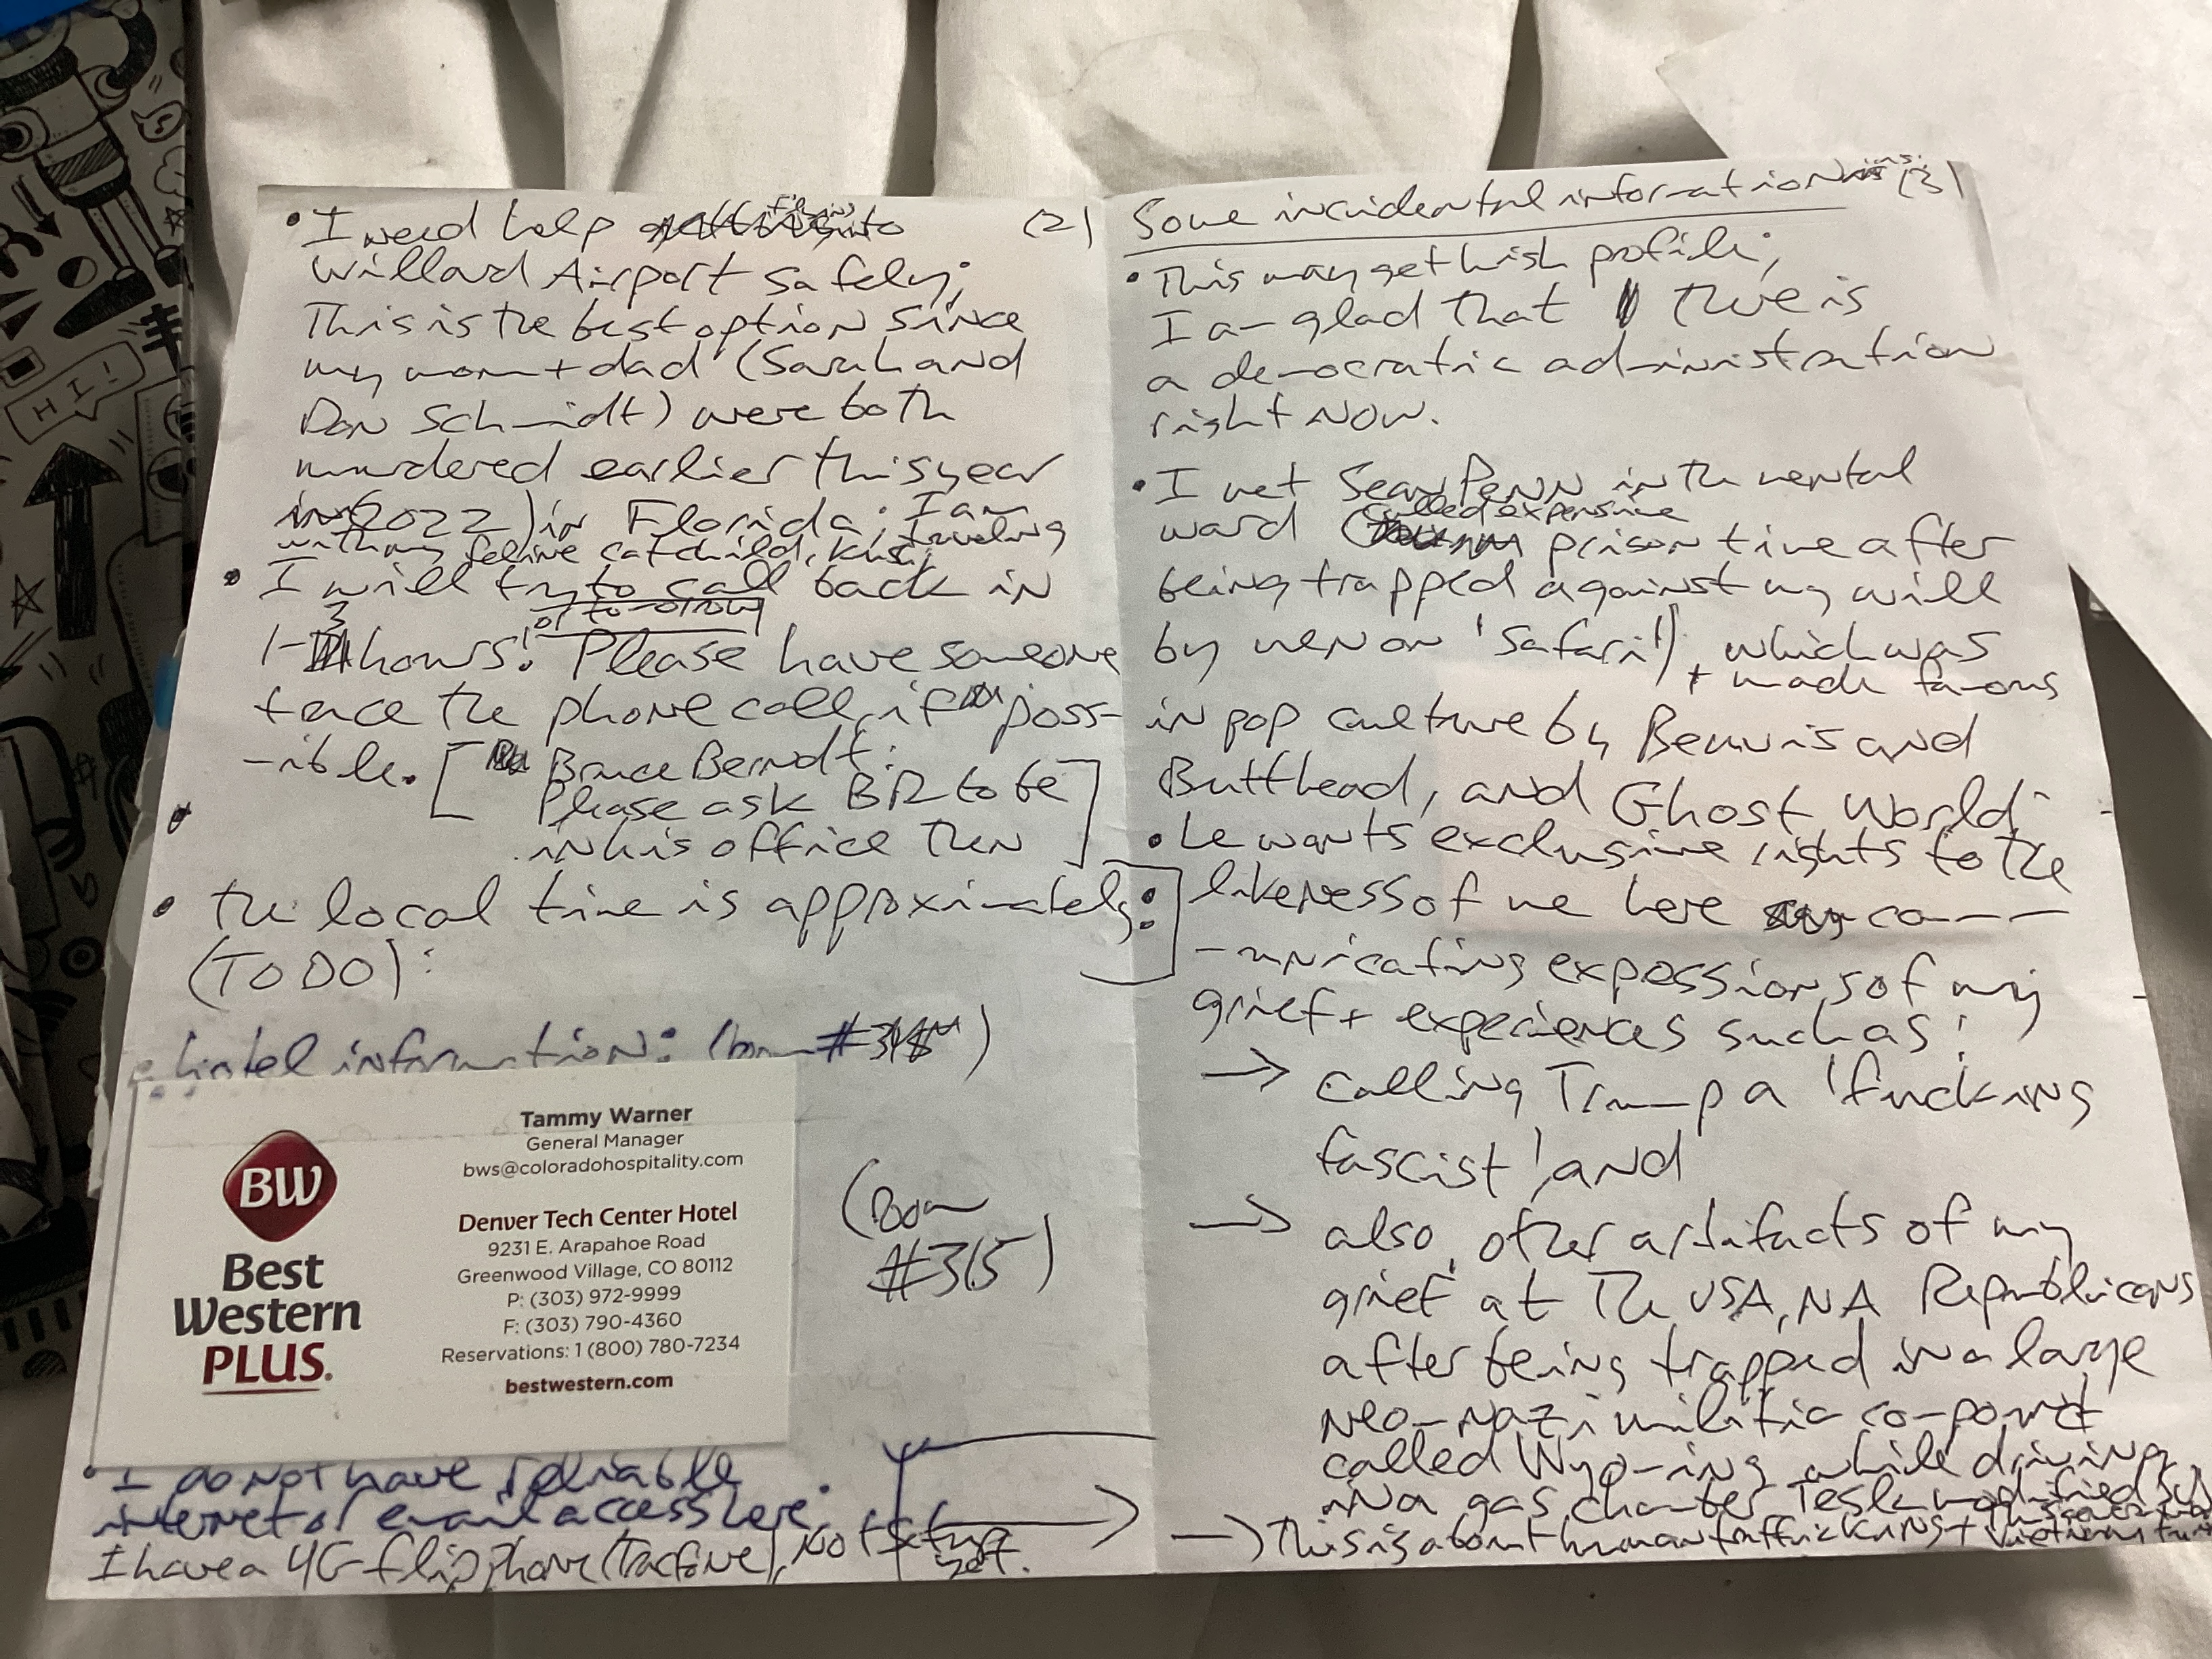 • I need help flying to (2)
Willard Airport safely;
This is the best option since
my mom + dad (Sarah and
Dan Schmidt) were both
murdered earlier this year
in 2022) in Florida; I am
traveling
with my feline catchild,
• I will try to call back in
or tomorrow
1-3 hours! Please have someone
trace the phone call, if poss-
-ible. [Bruce Berndt:
Please ask BR to be
in his office then]
• the local time is approximately:
(TO DO):
• hotel information:
Tammy Warner
General Manager
bws@coloradohospitality.com
BW
Best
Western
PLUS.
Denver Tech Center Hotel
9231 E. Arapahoe Road
Greenwood Village, CO 80112
P: (303) 972-9999
F: (303) 790-4360
Reservations: 1 (800) 780-7234
bestwestern.com
(Room
#315)
• I do not have reliable
internet or email access here.
I have a 4G flip phone (Tracfone), not setup
yet.
Some incidental information (3)
• This may get high profile;
I am glad that there is
a democratic administration
right now.
• I met Sean Penn in the mental
ward (called expensive
prison time after
being trapped against my will
by men on 'safari'), which was
+ made famous
in pop culture by Beavis and
Butthead, and Ghost World
• he wants exclusive rights to the
likeness of me here com-
-municating expessions of my
grief + experiences such as:
→ calling Trump a 'fucking
fascist' and
→ also, other artifacts of my
grief at the USA, NA Republicans
after being trapped in a large
neo-nazi militia compound
called Wyoming while driving
in a gas chamber Tesla modified
→ This is about human trafficking + Vietnam
HI!